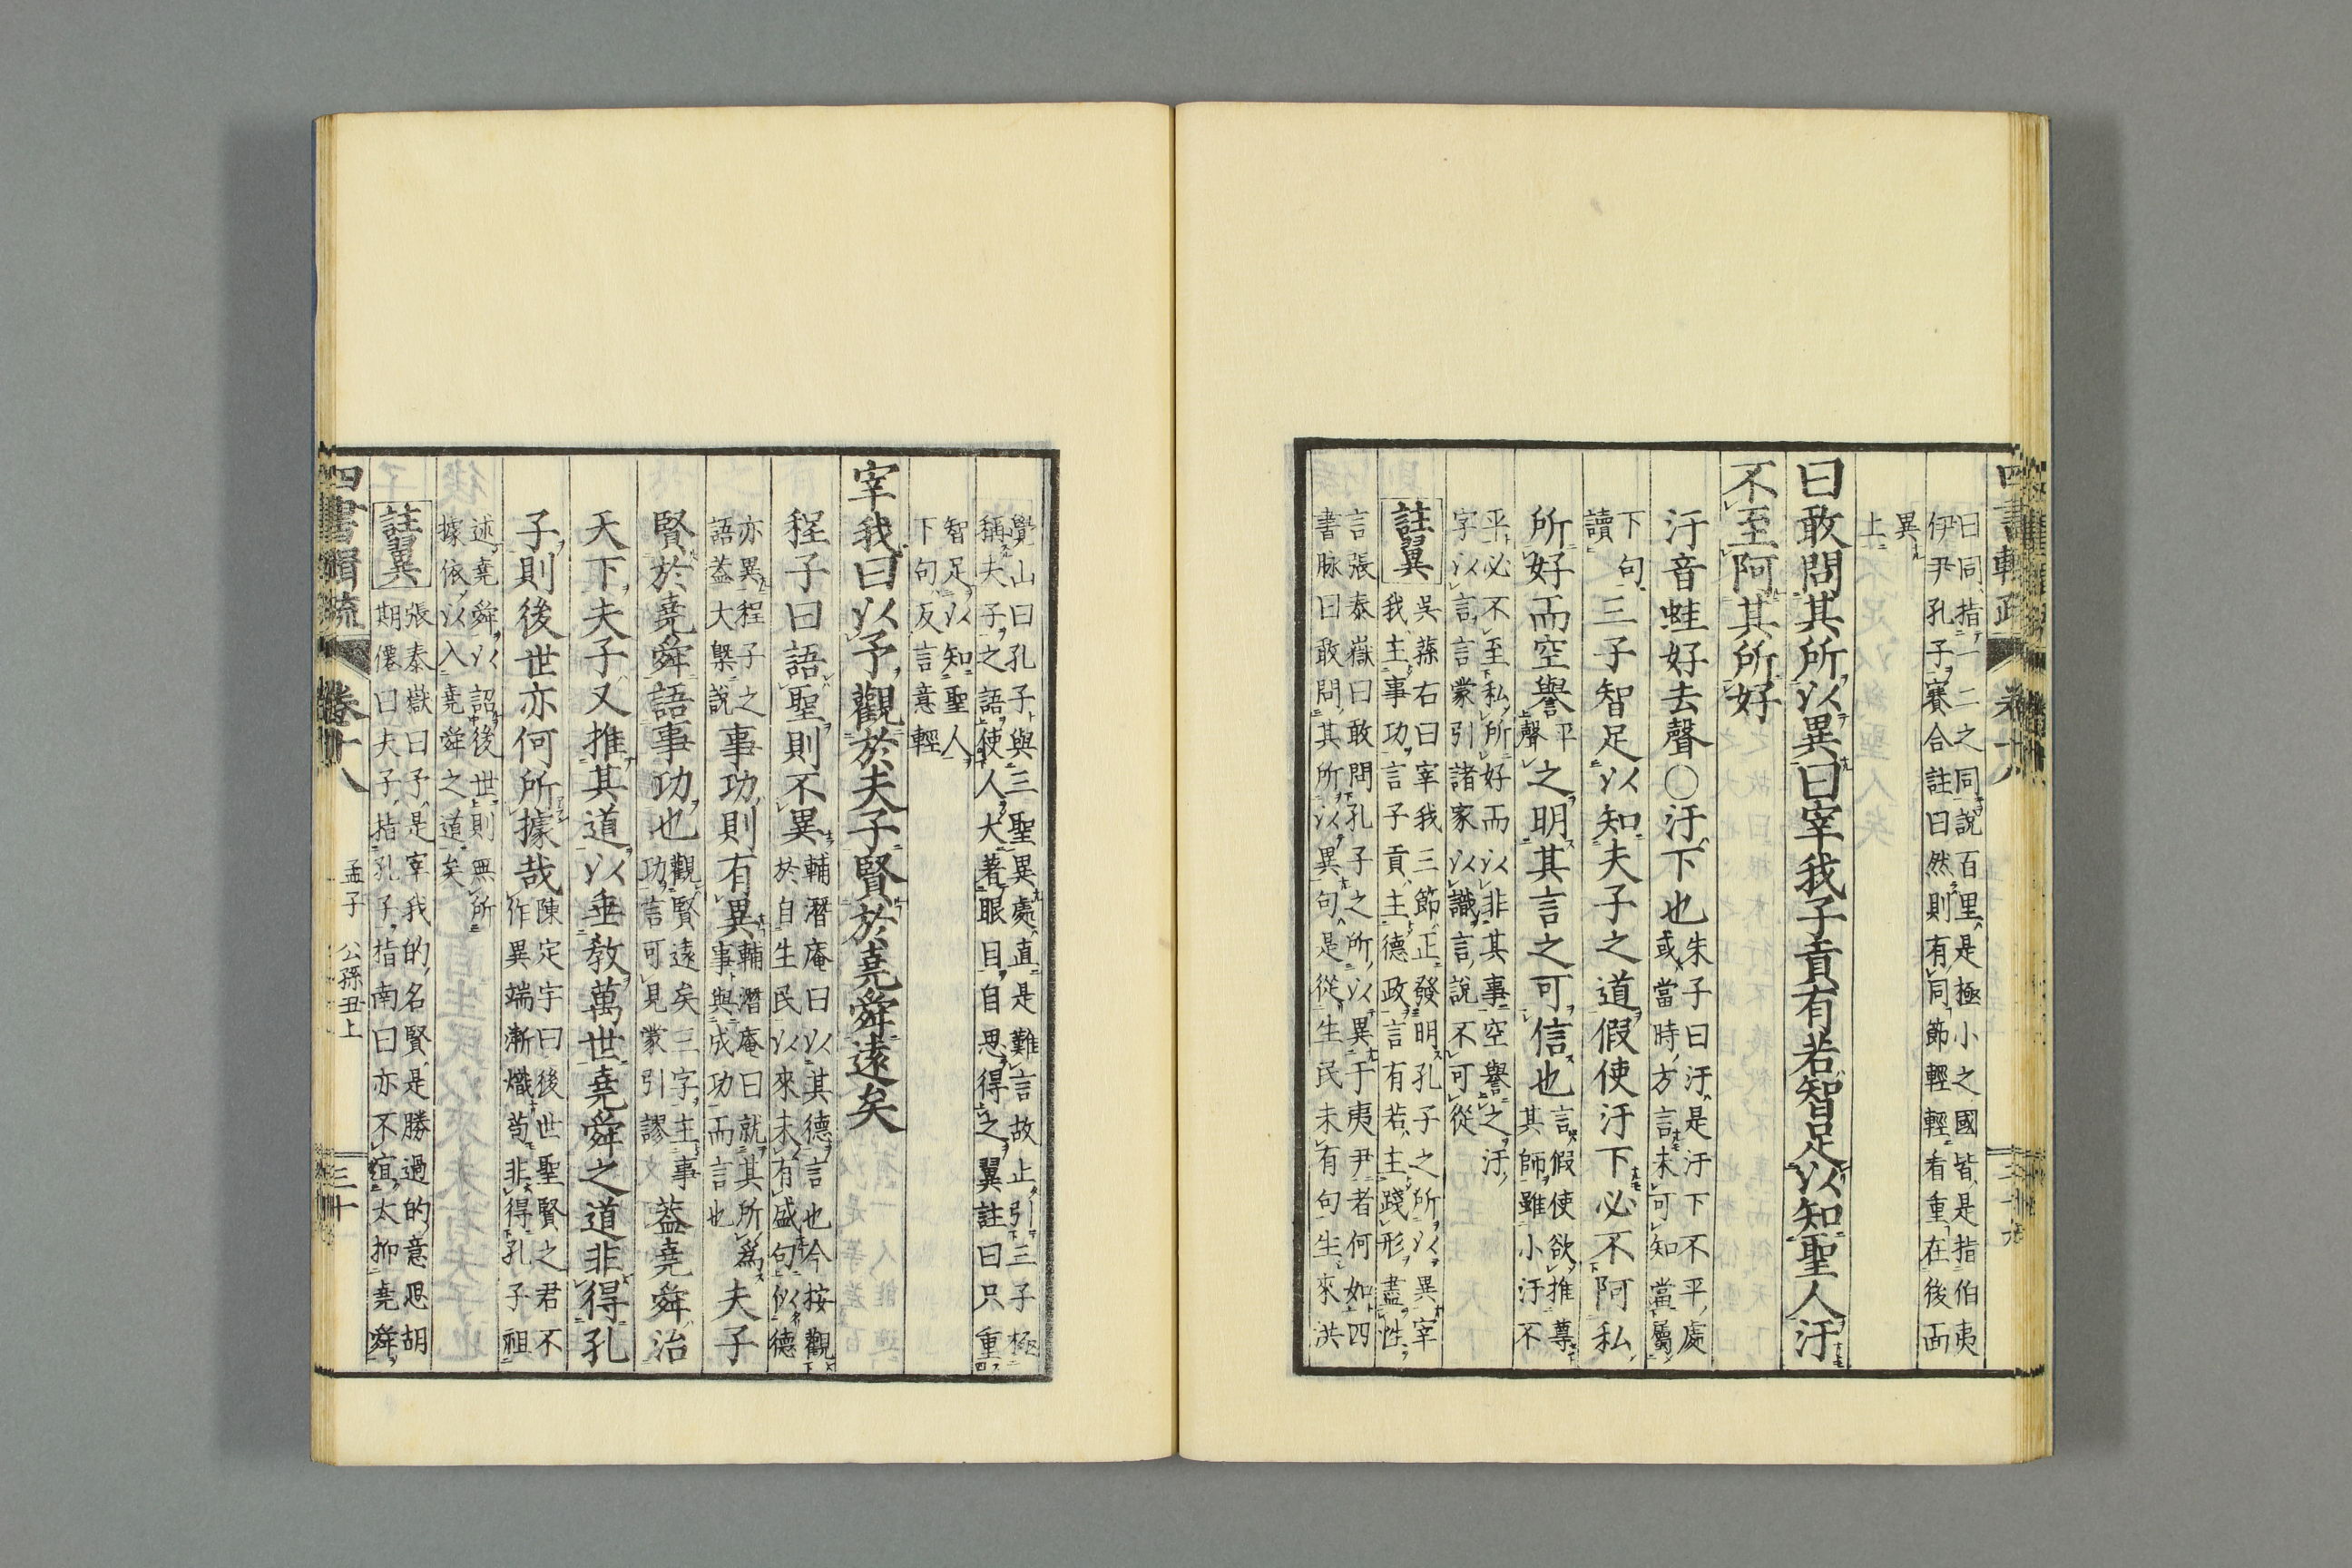 曰同指一二之同說百里是極小之國皆是指伯夷
伊尹孔子賽合註曰然則有同節輕輕看重在後面
異
上
曰敢問其所以異曰宰我子貢有若智足以知聖人汙
不至阿其所好
汙音蛙好去聲○汙下也
朱子曰汙是汙下不平處
或當時方言未可知當屬
下句
讀
三子智足以知夫子之道假使汙下必不阿私
所好而空譽
平
聲
之明其言之可信也
言假使欲推尊
其師雖小汙不
平必不至私所好而以非其事空譽之汙
字以言言蒙引諸家以識言說不可從
註翼
吳蓀右曰宰我三節正發明孔子之所以異宰
我主事功言子貢主德政言有若主踐形盡性
言張泰嶽曰敢問孔子之所以異于夷尹者何如四
書脉曰敢問其所以異句是從生民未有句生來洪
覺山曰孔子與三聖異處直是難言故止引三子極
稱夫子之語使人大著眼目自思得之翼註曰只重
智足以知聖人
下句反言意輕
宰我曰以予觀於夫子賢於堯舜遠矣
程子曰語聖則不異
輔潛庵曰以其德言也今按觀
於自生民以來未有盛句似德
亦異程子之
語蓋大槩說
事功則有異
輔潛庵曰就其所爲
事與成功而言也
夫子
賢於堯舜語事功也
觀賢遠矣三字主事
功言可見蒙引謬
蓋堯舜治
天下夫子又推其道以垂敎萬世堯舜之道非得孔
子則後世亦何所據哉
陳定宇曰後世聖賢之君不
作異端漸熾苟非得孔子祖
述堯舜以詔後世則無所
據依以入堯舜之道矣
註翼
張泰嶽曰予是宰我的名賢是勝過的意思胡
期僊曰夫子指孔子指南曰亦不宜太抑堯舜
四書輯疏
卷十八
孟子
公孫丑上
三十